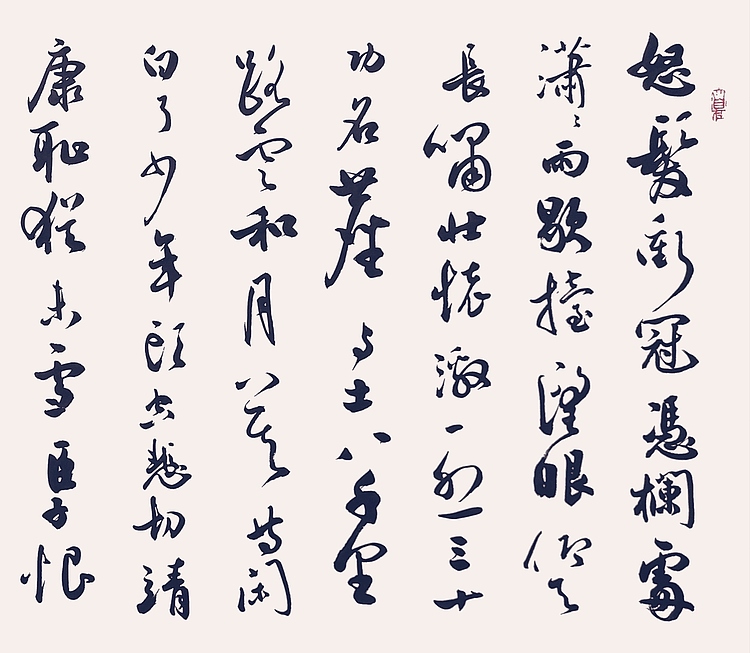 怒髮衝冠憑欄處
瀟瀟雨歇擡望眼仰天
長嘯壯懷激烈三十
功名塵與土八千里
路雲和月莫等閑
白了少年頭空悲切靖
康恥猶未雪臣子恨